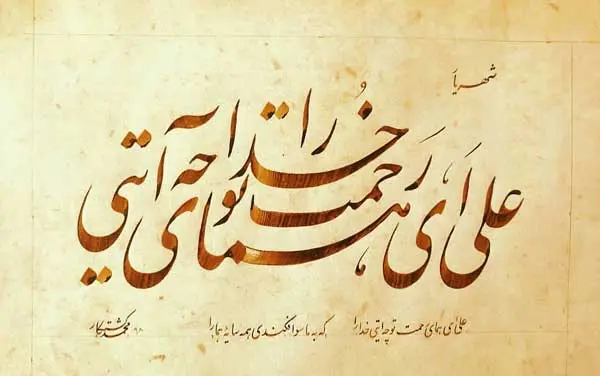 شهریار
علی ای همای رحمت تو چه آیتی خدا را
علی ای همای رحمت تو چه آیتی خدا را که به ماسوا فکندی همه سایهٔ هما را
محمد کشتکار